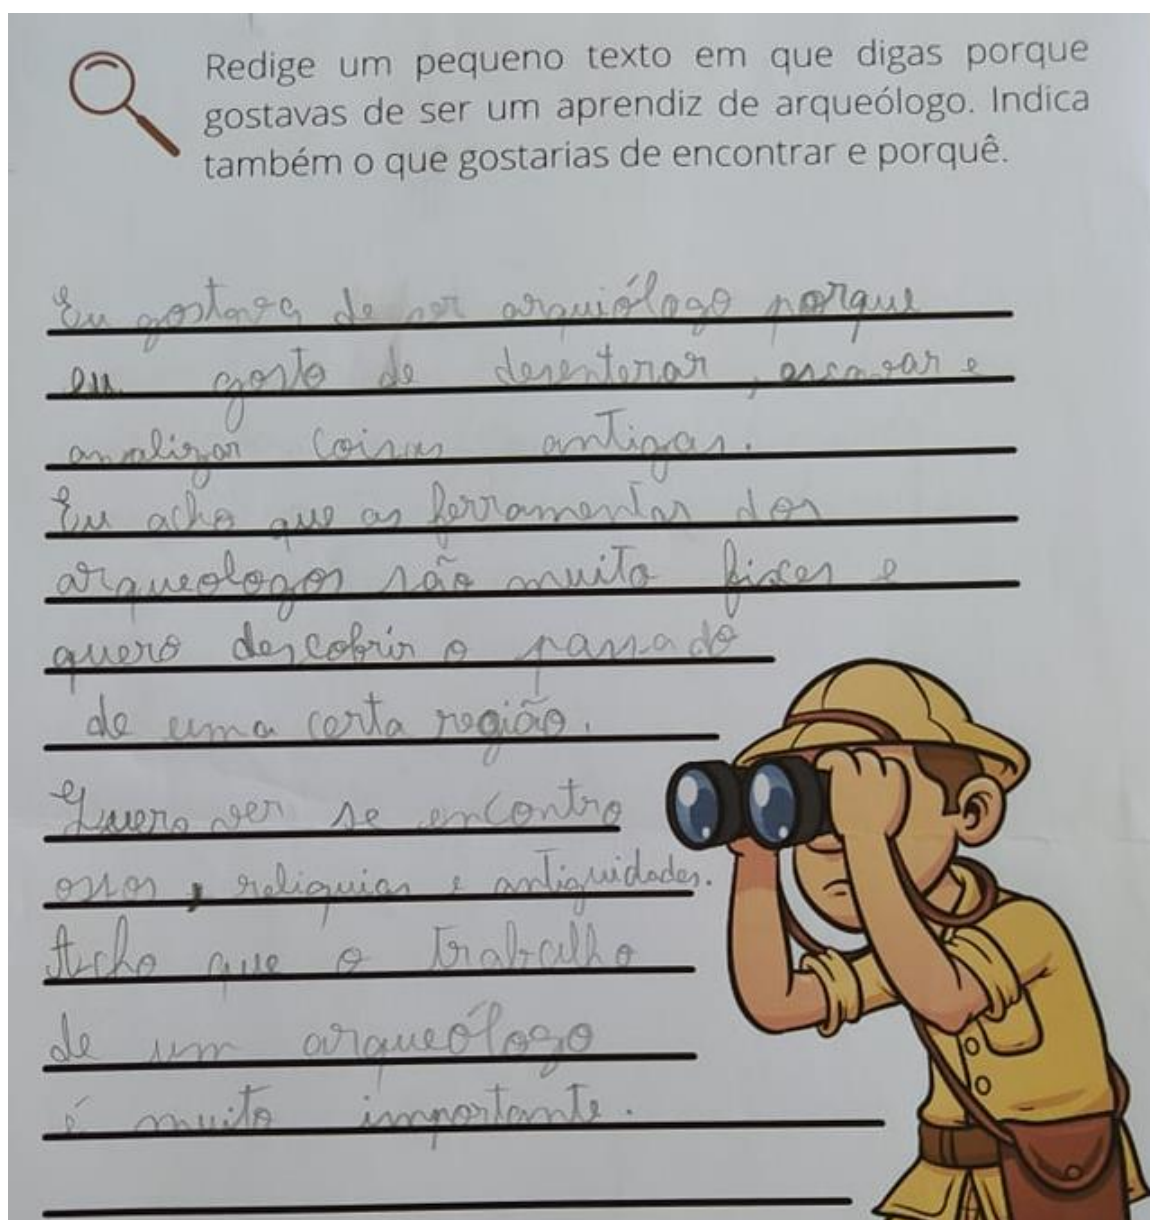 Redige um pequeno texto em que digas porque
gostavas de ser um aprendiz de arqueólogo. Indica
também o que gostarias de encontrar e porquê.
Eu gostava de ser arquiólogo porque
eu gosto de desenterar, escavar e
analizar coisas antigas.
Eu acho que as ferramentas dos
arqueologos são muito fixes e
quero descobrir o passado
de uma certa região.
Quero ver se encontro
ossos, reliquias e antiguidades.
Acho que o trabalho
de um arqueólogo
é muito importante.